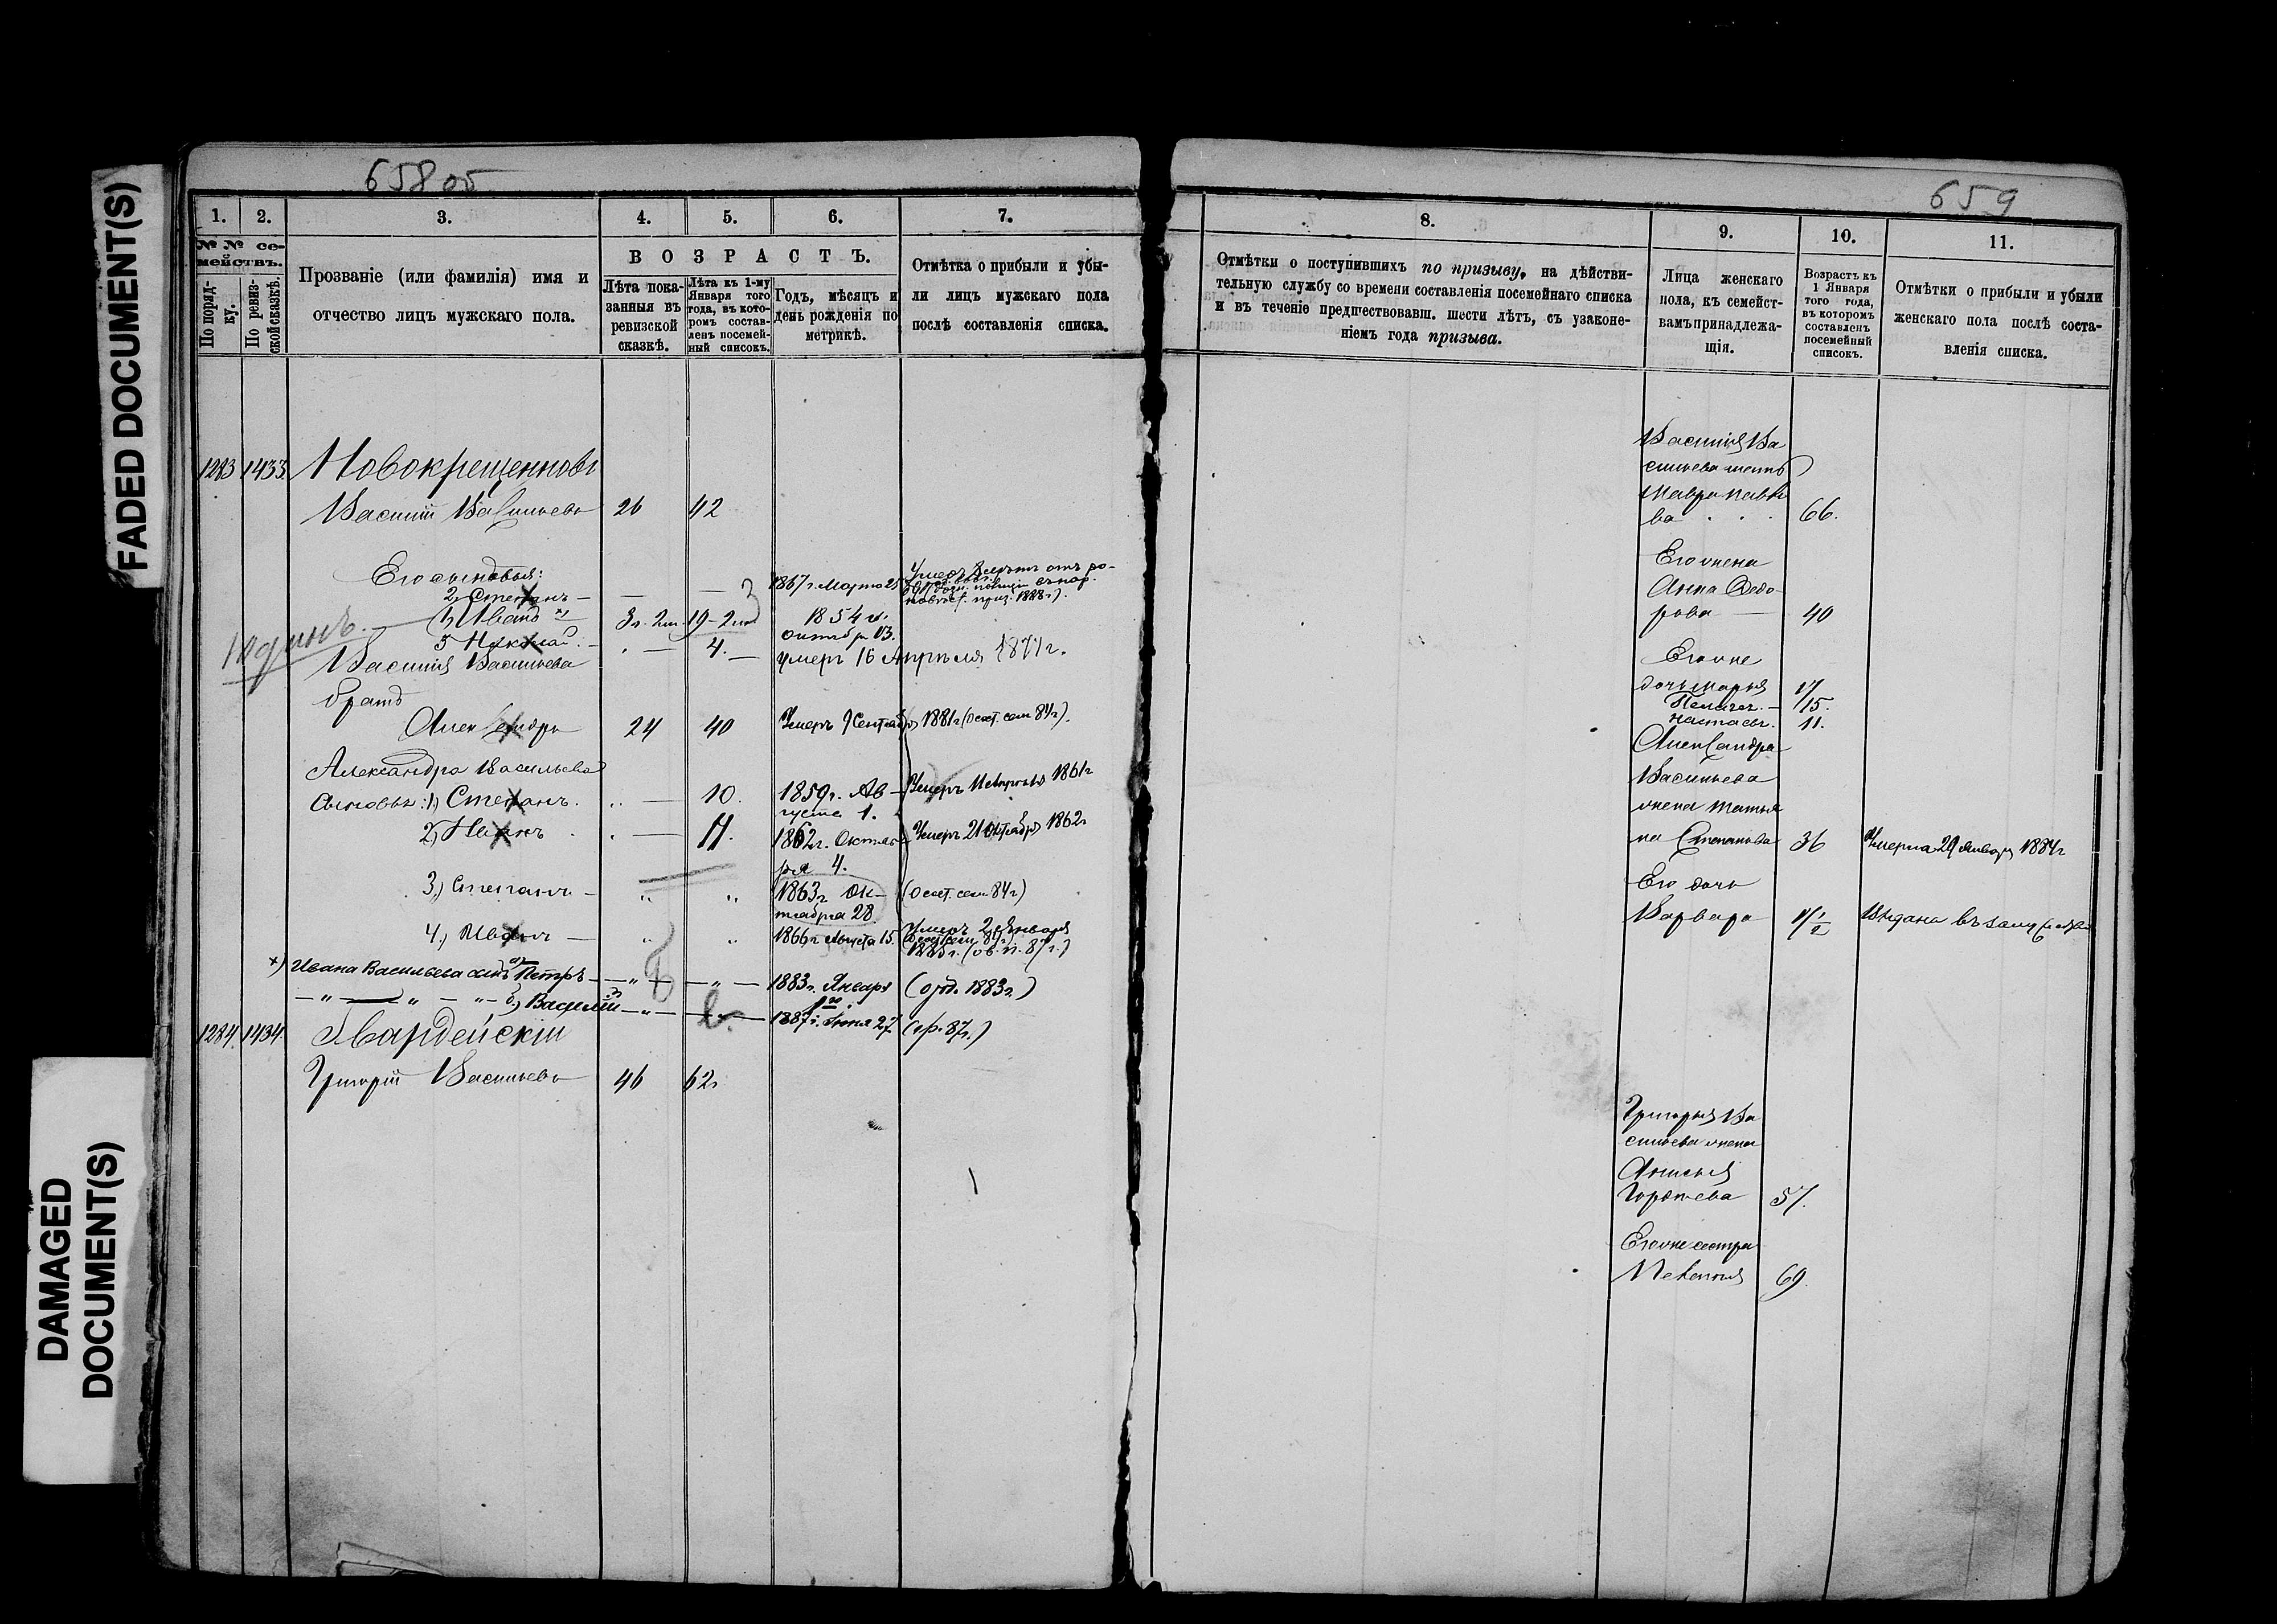 FADED DOCUMENT(S)
DAMAGED
DOCUMENT(S)
658 об
1. 2. 3. 4. 5. 6. 7.
№ № се-
мействъ.
По поряд-
ку.
По ревиз-
ской сказкѣ.
Прозваніе (или фамилія) имя и
отчество лицъ мужскаго пола.
ВОЗРАСТЪ.
Лѣта пока-
занныя въ
ревизской
сказкѣ.
Лѣта къ 1-му
Января того
года, въ кото-
ромъ состав-
ленъ посемей-
ный списокъ.
Годъ, мѣсяцъ и
день рожденія по
метрикѣ.
Отмѣтка о прибыли и убы-
ли лицъ мужскаго пола
послѣ составленія списка.
1283 1433. Новокрещенновъ
Василій Васильевъ 26 42
Его сыновья:
2, Степанъ — — — 1867 г. Марта 25
1, Иванъ х) 3 г. 2 м. 19-2 м. 1854 г.
октября 13.
1 одинъ.
3 Николай. — . — 4. — умеръ 16 Апрѣля 1871 г.
Василія Васильева
братъ
Александръ 24 40 Умеръ 9 Сентября 1881 г (8 сост. сем. 84 г).
Александра Васильева
сыновья: 1, Степанъ. . — 10. 1859 г. Ав-
густа 1.
Умеръ 1861 г
2, Иванъ . — 11. 1862 г. Октяб-
ря 4.
Умеръ 21 Октября 1862 г
3, Степанъ — " " 1863 г. Ок-
тября 28
(8 сост. сем. 84 г)
4, Иванъ — " " 1866 г. Августа 15.
Умеръ 2 Января
1885 г. (об. п. 87 г.)
х) Ивана Васильева сынъ а) Петръ — " — — " — 1883 г. Января (о рд. 1883 г.)
— " — " — " — б) Василій — " — 1887 г. Іюня 27. (пр. 87 г.)
1284. 1434. Гвардейскій
Григорій Васильевъ 46 62
659
8. 9. 10. 11.
Отмѣтки о поступившихъ по призыву, на дѣйстви-
тельную службу со времени составленія посемейнаго списка
и въ теченіе предшествовавш. шести лѣтъ, съ узаконе-
ніемъ года призыва.
Лица женскаго
пола, къ семейст-
вамъ принадлежа-
щія.
Возрастъ къ
1 Января
того года,
въ которомъ
составленъ
посемейный
списокъ.
Отмѣтки о прибыли и убыли
женскаго пола послѣ соста-
вленія списка.
Василія Ва
сильева мать
Мавра Павло
ва . . . 66.
Его жена
Анна Ѳедо-
рова — 40
Его же
дочь Марья 17
Пелагея. — 15.
Настасья. 11.
Александра
Васильева
жена Татья
на Степанова 36 Умерла 29 Января 1884 г
Его дочь
Варвара 1/2 Выдана въ замуж
Григорья Ва
сильева жена
Анисья
Гордѣева 57.
Его же сестра
69.